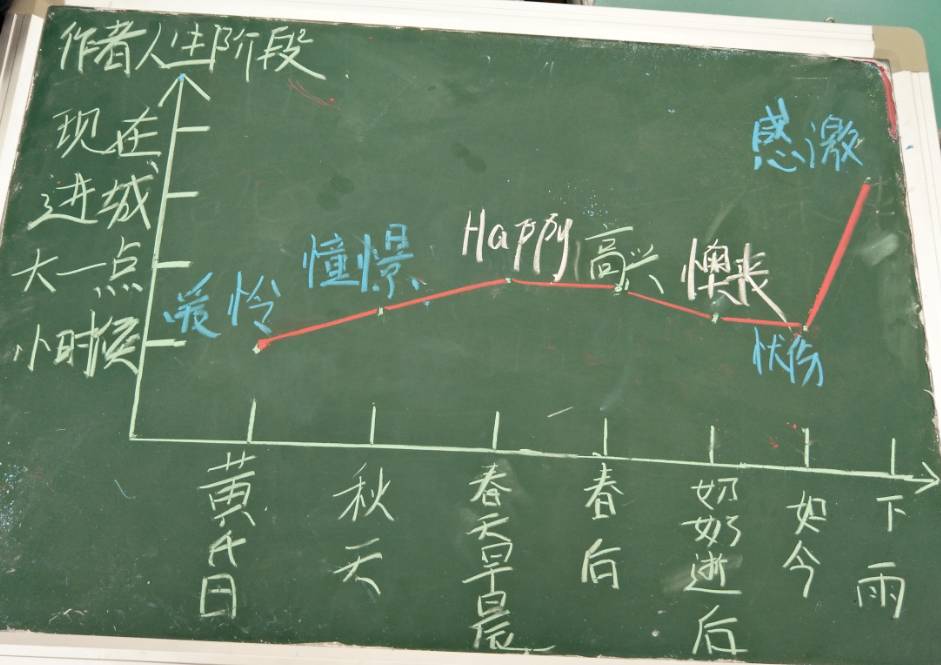 作者人生阶段
现在
进城
大一点
小时候
爱怜
憧憬
Happy
高兴
懊丧
忧伤
感激
黄昏
秋天
春天早晨
春后
奶奶逝后
如今
下雨